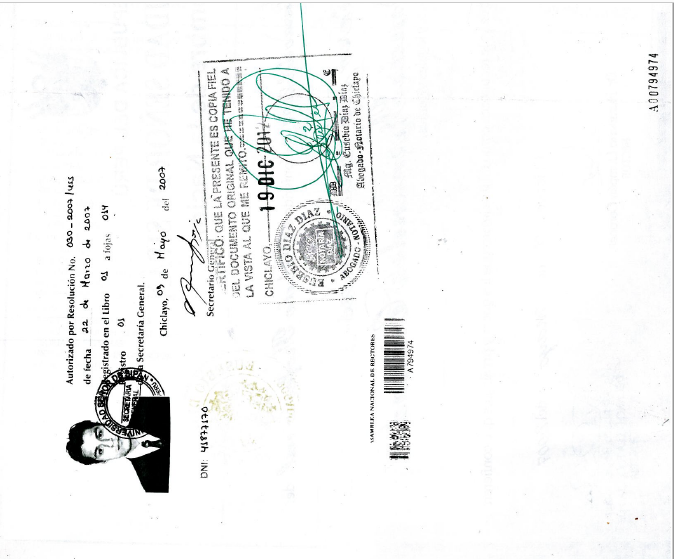 Autorizado por Resolución No. 030_2007/USS
de fecha 22 de Marzo de 2007
egistrado en el Libro 01 a fojas 014
stro 01
a Secretaría General.
Chiclayo, 03 de Mayo del 2007
Secretario General
UNIVERSIDAD SEÑOR DE SIPAN
SECRETARIA GENERAL
DNI: 41877170
CERTIFICO: QUE LA PRESENTE ES COPIA FIEL
DEL DOCUMENTO ORIGINAL QUE HE TENIDO A
LA VISTA AL QUE ME REMITO.
CHICLAYO, 19 DIC 2017
Mg. Eusebio Diaz Diaz
Abogado-Notario de Chiclayo
EUSEBIO DIAZ DIAZ
ABOGADO - NOTARIO
ASAMBLEA NACIONAL DE RECTORES
A794974
A00794974